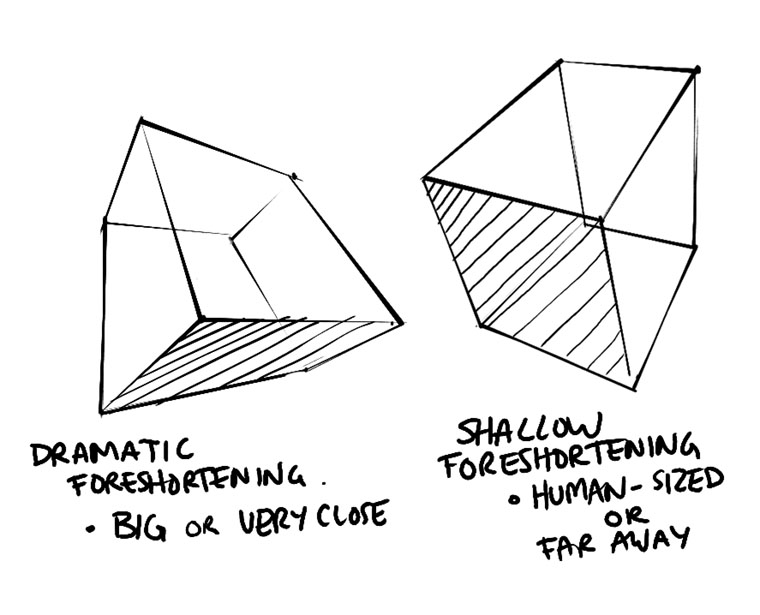 DRAMATIC
FORESHORTENING.
• BIG OR VERY CLOSE
SHALLOW
FORESHORTENING
• HUMAN-SIZED
OR
FAR AWAY